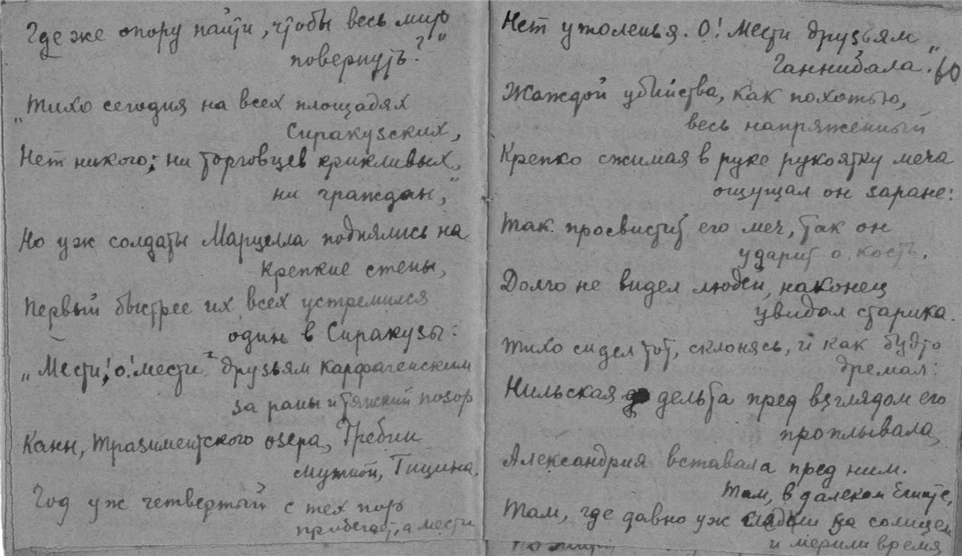 Где же опору найти, чтобы весь мир
повернуть?"
„Тихо сегодня на всех площадях
Сиракузских,
Нет никого; ни торговцев крикливых,
ни граждан,"
Но уж солдаты Марцелла поднялись на
крепкие стены,
Первый быстрее их всех устремился
один в Сиракузы:
„Мести! о! мести друзьям карфагенским
за раны и тяжкий позор
Канн, Тразиментского озера, Требии
мутной, Тицина.
Год уж четвертый с тех пор
пробегает, а мести
Нет утоленья. О! Мести друзьям
Ганнибала."
Жаждой убийства, как похотью,
весь напряженный
Крепко сжимая в руке рукоятку меча
ощущал он заране:
Так просвистит его меч, так он
ударит о кость.
Долго не видел людей, наконец
увидал старика.
Тихо сидел тот, склонясь, и как будто
дремал:
Нильская дельта пред взглядом его
проплывала,
Александрия вставала пред ним.
Там, в далеком Египте,
Там, где давно уж следили за солнцем
и мерили время